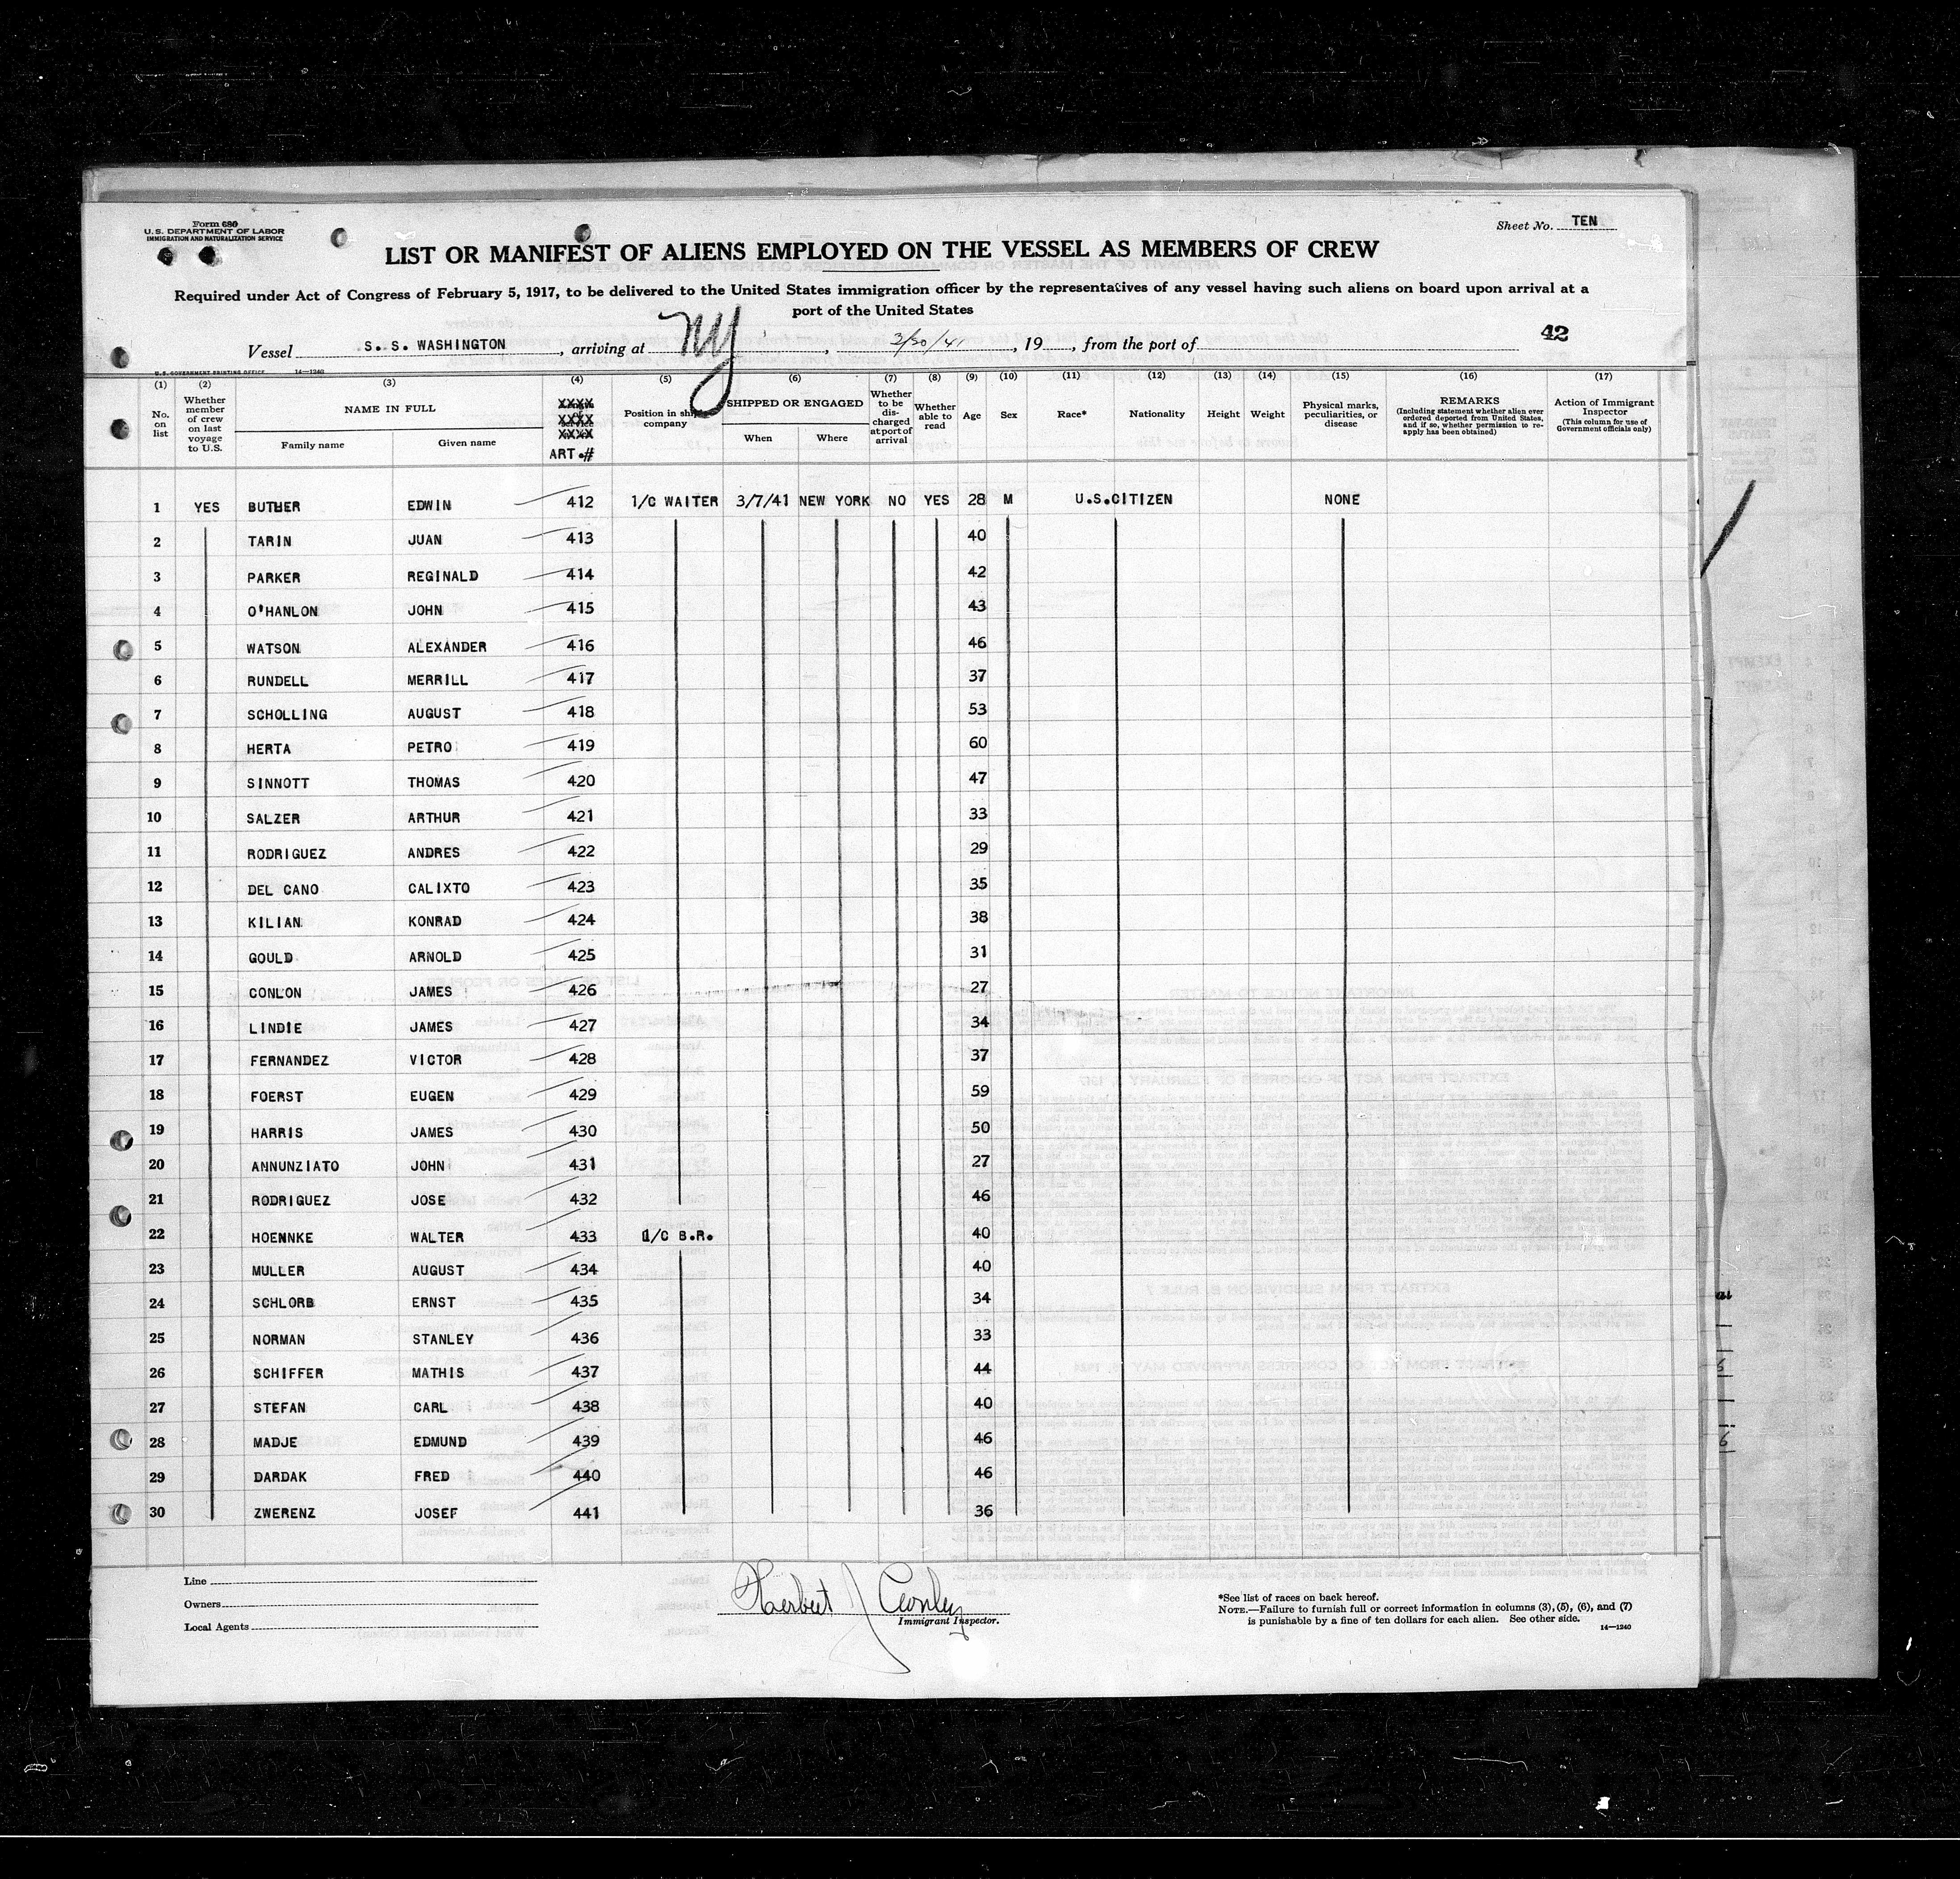 Form 680
U. S. DEPARTMENT OF LABOR
IMMIGRATION AND NATURALIZATION SERVICE
Sheet No. TEN
LIST OR MANIFEST OF ALIENS EMPLOYED ON THE VESSEL AS MEMBERS OF CREW
Required under Act of Congress of February 5, 1917, to be delivered to the United States immigration officer by the representatives of any vessel having such aliens on board upon arrival at a
port of the United States
42
Vessel S. S. WASHINGTON, arriving at NY, 3/20/41, 19, from the port of
U. S. GOVERNMENT PRINTING OFFICE 14—1240
(1) (2) (3) (4) (5) (6) (7) (8) (9) (10) (11) (12) (13) (14) (15) (16) (17)
No. on list
Whether member of crew on last voyage to U.S.
NAME IN FULL
Family name
Given name
XXXX
XXXX
XXXX
ART.#
Position in ship's company
SHIPPED OR ENGAGED
When
Where
Whether to be discharged at port of arrival
Whether able to read
Age
Sex
Race*
Nationality
Height
Weight
Physical marks, peculiarities, or disease
REMARKS
(Including statement whether alien ever ordered deported from United States, and if so, whether permission to reapply has been obtained)
Action of Immigrant Inspector
(This column for use of Government officials only)
1 YES BUTHER EDWIN 412 1/C WAITER 3/7/41 NEW YORK NO YES 28 M U.S.CITIZEN NONE
2 TARIN JUAN 413 40
3 PARKER REGINALD 414 42
4 O'HANLON JOHN 415 43
5 WATSON ALEXANDER 416 46
6 RUNDELL MERRILL 417 37
7 SCHOLLING AUGUST 418 53
8 HERTA PETRO 419 60
9 SINNOTT THOMAS 420 47
10 SALZER ARTHUR 421 33
11 RODRIGUEZ ANDRES 422 29
12 DEL CANO CALIXTO 423 35
13 KILIAN KONRAD 424 38
14 GOULD ARNOLD 425 31
15 CONLON JAMES 426 27
16 LINDIE JAMES 427 34
17 FERNANDEZ VICTOR 428 37
18 FOERST EUGEN 429 59
19 HARRIS JAMES 430 50
20 ANNUNZIATO JOHN 431 27
21 RODRIGUEZ JOSE 432 46
22 HOENNKE WALTER 433 1/C B.R. 40
23 MULLER AUGUST 434 40
24 SCHLORB ERNST 435 34
25 NORMAN STANLEY 436 33
26 SCHIFFER MATHIS 437 44
27 STEFAN CARL 438 40
28 MADJE EDMUND 439 46
29 DARDAK FRED 440 46
30 ZWERENZ JOSEF 441 36
Line
Owners
Local Agents
Herbert J Conley
Immigrant Inspector.
*See list of races on back hereof.
NOTE.—Failure to furnish full or correct information in columns (3), (5), (6), and (7)
is punishable by a fine of ten dollars for each alien. See other side.
14—1240